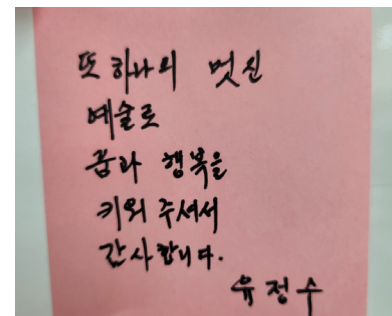 또 하나의 멋진
예술로
꿈과 행복을
키워 주셔서
감사합니다.
유정수